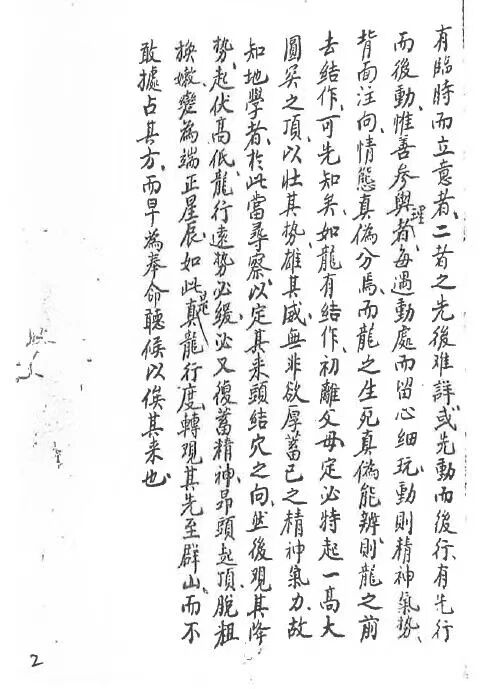 有臨時而立意者、二者之先後难詳、或先動而後行、有先行
而後動、惟善参輿理者、每遇動處而留心細玩、動則精神氣勢、
背面注向、情態真偽分焉、而龍之生死真偽能辨、則龍之前
去結作、可先知矣、如龍有結作、初離父母、定必特起一高大
圓笑之頂、以壯其勢、雄其威、無非欲厚蓄已之精神氣力、故
知地學者、於此當尋察、以定其来頭結穴之向、然後观其降
勢、起伏高低、龍行遠勢必緩、必又復蓄精神、昂頭起頂、脫粗
換嫩、變為端正星辰、如此是真龍行度、轉观其先至群山、而不
敢據占其方、而早為奉命聽候以俟其来也
2